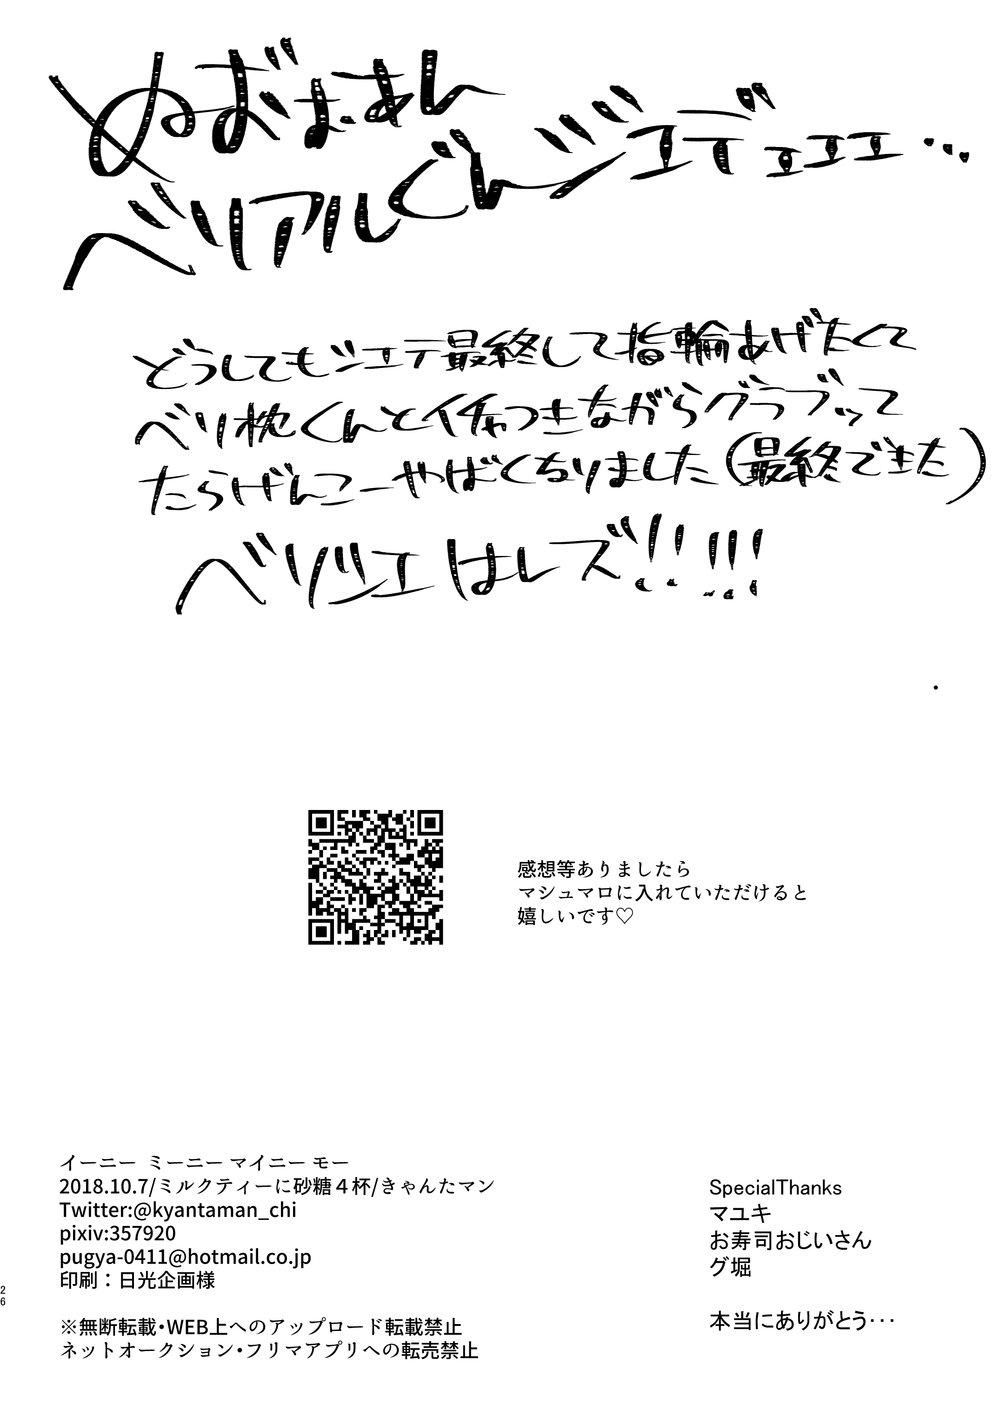 ぬぉまぁん
ベリアルぐんジエデェェェ…
どうしてもシエテ最終して指輪あげたくて
ベリ枕くんとイチャつきながらグラブッて
たらげんこーやばくなりました(最終できた)
ベリシエはレズ!!!!!
感想等ありましたら
マシュマロに入れていただけると
嬉しいです♡
イーニー ミーニー マイニー モー
2018.10.7/ミルクティーに砂糖４杯/きゃんたマン
Twitter:@kyantaman_chi
pixiv:357920
pugya-0411@hotmail.co.jp
印刷：日光企画様
※無断転載・WEB上へのアップロード転載禁止
ネットオークション・フリマアプリへの転売禁止
SpecialThanks
マユキ
お寿司おじいさん
グ堀
本当にありがとう･･･
26